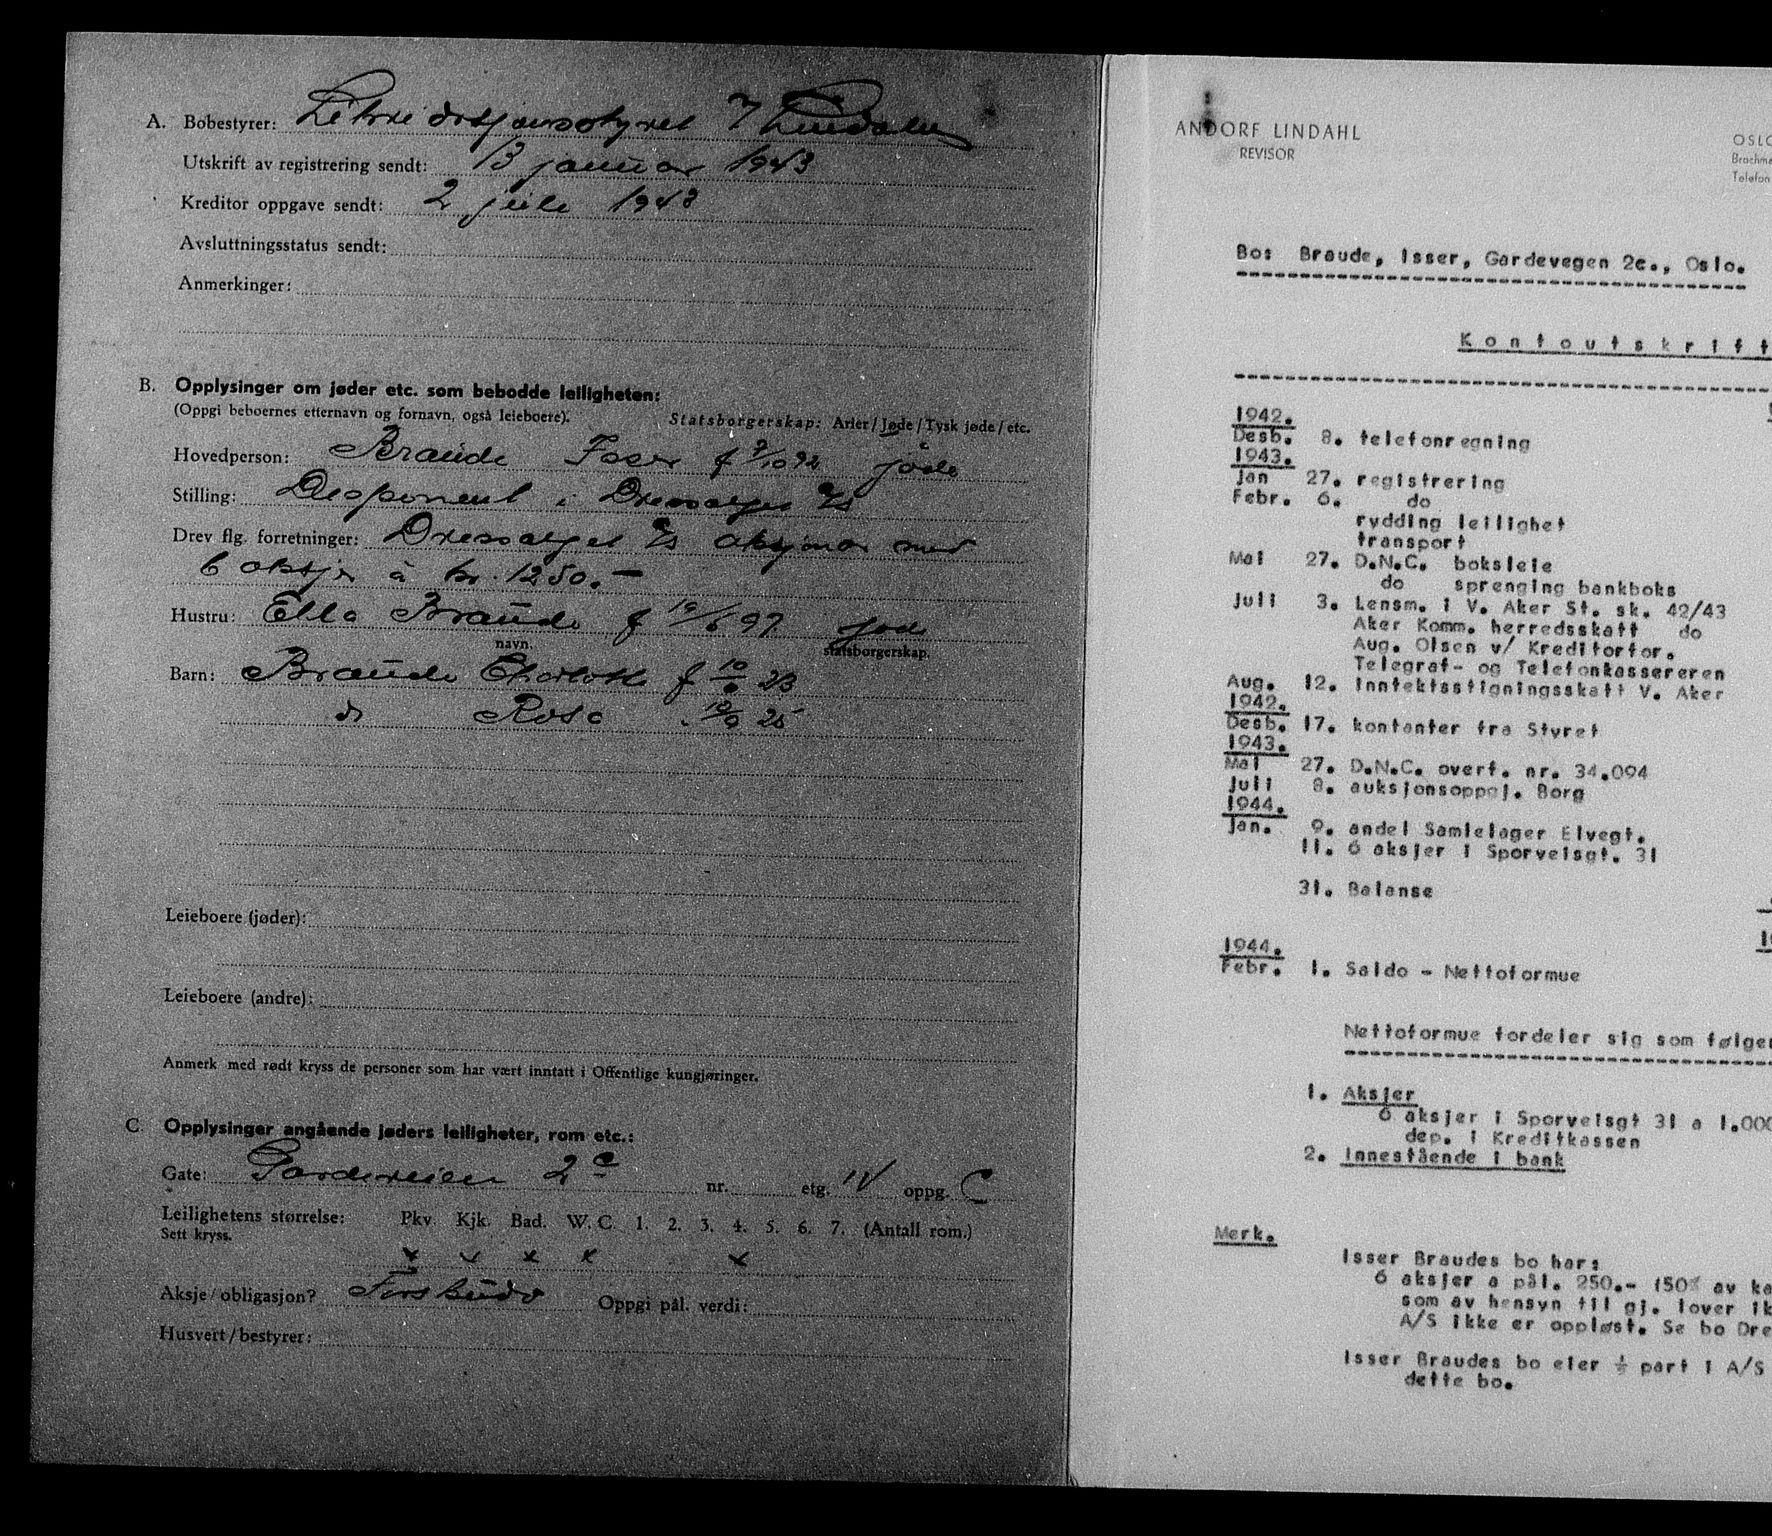 A. Bobestyrer: Likvidasjonsstyret v/ Lindahl
Utskrift av registrering sendt: 13 januar 1943
Kreditor oppgave sendt: 2 juli 1943
Avsluttningsstatus sendt:
Anmerkinger:
B. Opplysinger om jøder etc. som bebodde leiligheten:
(Oppgi beboernes etternavn og fornavn, også leieboere). Statsborgerskap: Arier/Jøde/Tysk jøde/etc.
Hovedperson: Braude Isser f 7/10 92 jøde
Stilling: Disponent i Dressarget A/S
Drev flg. forretninger: Dressarget A/S aksjonær med
6 aksjer à kr. 1250.-
Hustru: Ella Braude f 19/6 97 jøde
navn. statsborgerskap.
Barn: Braude Charlotte f 23
do Rosa 25
Leieboere (jøder):
Leieboere (andre):
Anmerk med rødt kryss de personer som har vært inntatt i Offentlige kungjøringer.
C. Opplysinger angående jøders leiligheter, rom etc.:
Gate: Gardeveien 2c nr. etg. IV oppg. C
Leilighetens størrelse: Pkv. Kjk. Bad. W.C. 1. 2. 3. 4. 5. 6. 7. (Antall rom.)
Sett kryss.
x x x x x
Aksje/obligasjon? Oppgi pål. verdi:
Husvert/bestyrer:
ANDORF LINDAHL
REVISOR
OSLO
Telefon
Bo: Braude, Isser, Gardevegen 2c., Oslo.
Kontoutskrift
1942.
Desb. 8. telefonregning
1943.
Jan 27. registrering
Febr. 6. do
rydding leilighet
transport
Mai 27. D.N.C. boksleie
do sprenging bankboks
Juli 3. Lensm. i V. Aker St. sk. 42/43
Aker Komm. herredsskatt do
Aug. Olsen v/ Kreditorfor.
Telegraf- og Telefonkassereren
Aug. 12. Inntektsstigningsskatt V. Aker
1942.
Desb. 17. kontanter fra Styret
1943.
Mai 27. D.N.C. overf. nr. 34.094
Juli 8. auksjonsoppgj. Borg
1944.
Jan. 9. andel Samlelager Elvegt.
11. 6 aksjer i Sporveisgt. 31
31. Balanse
1944.
Febr. 1. Saldo - Nettoformue
Nettoformue fordeler sig som følger
1. Aksjer
6 aksjer i Sporveisgt 31 a 1.000
dep. i Kreditkassen
2. Innestående i bank
Merk.
Isser Braudes bo har:
6 aksjer a pål. 250.- 150% av ka
som av hensyn til gj. lover ik
A/S ikke er oppløst. Se bo Dre
Isser Braudes bo eier ½ part i A/S
dette bo.